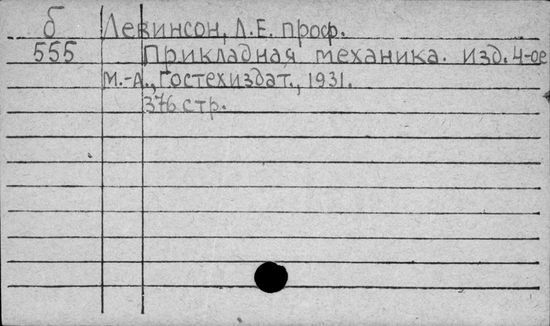 б Левинсон, Л.Е. проф.
555 Прикладная механика. изд. 4-ое
М.-Л., Гостехиздат., 1931.
376 стр.